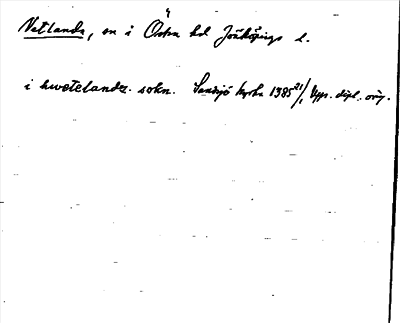 Vetlanda, sn i Östra hd Jönköpings l.
i hwetelanda. sokn. Sandsjö kyrka 1385 21/1 Upps. dipl. orig.